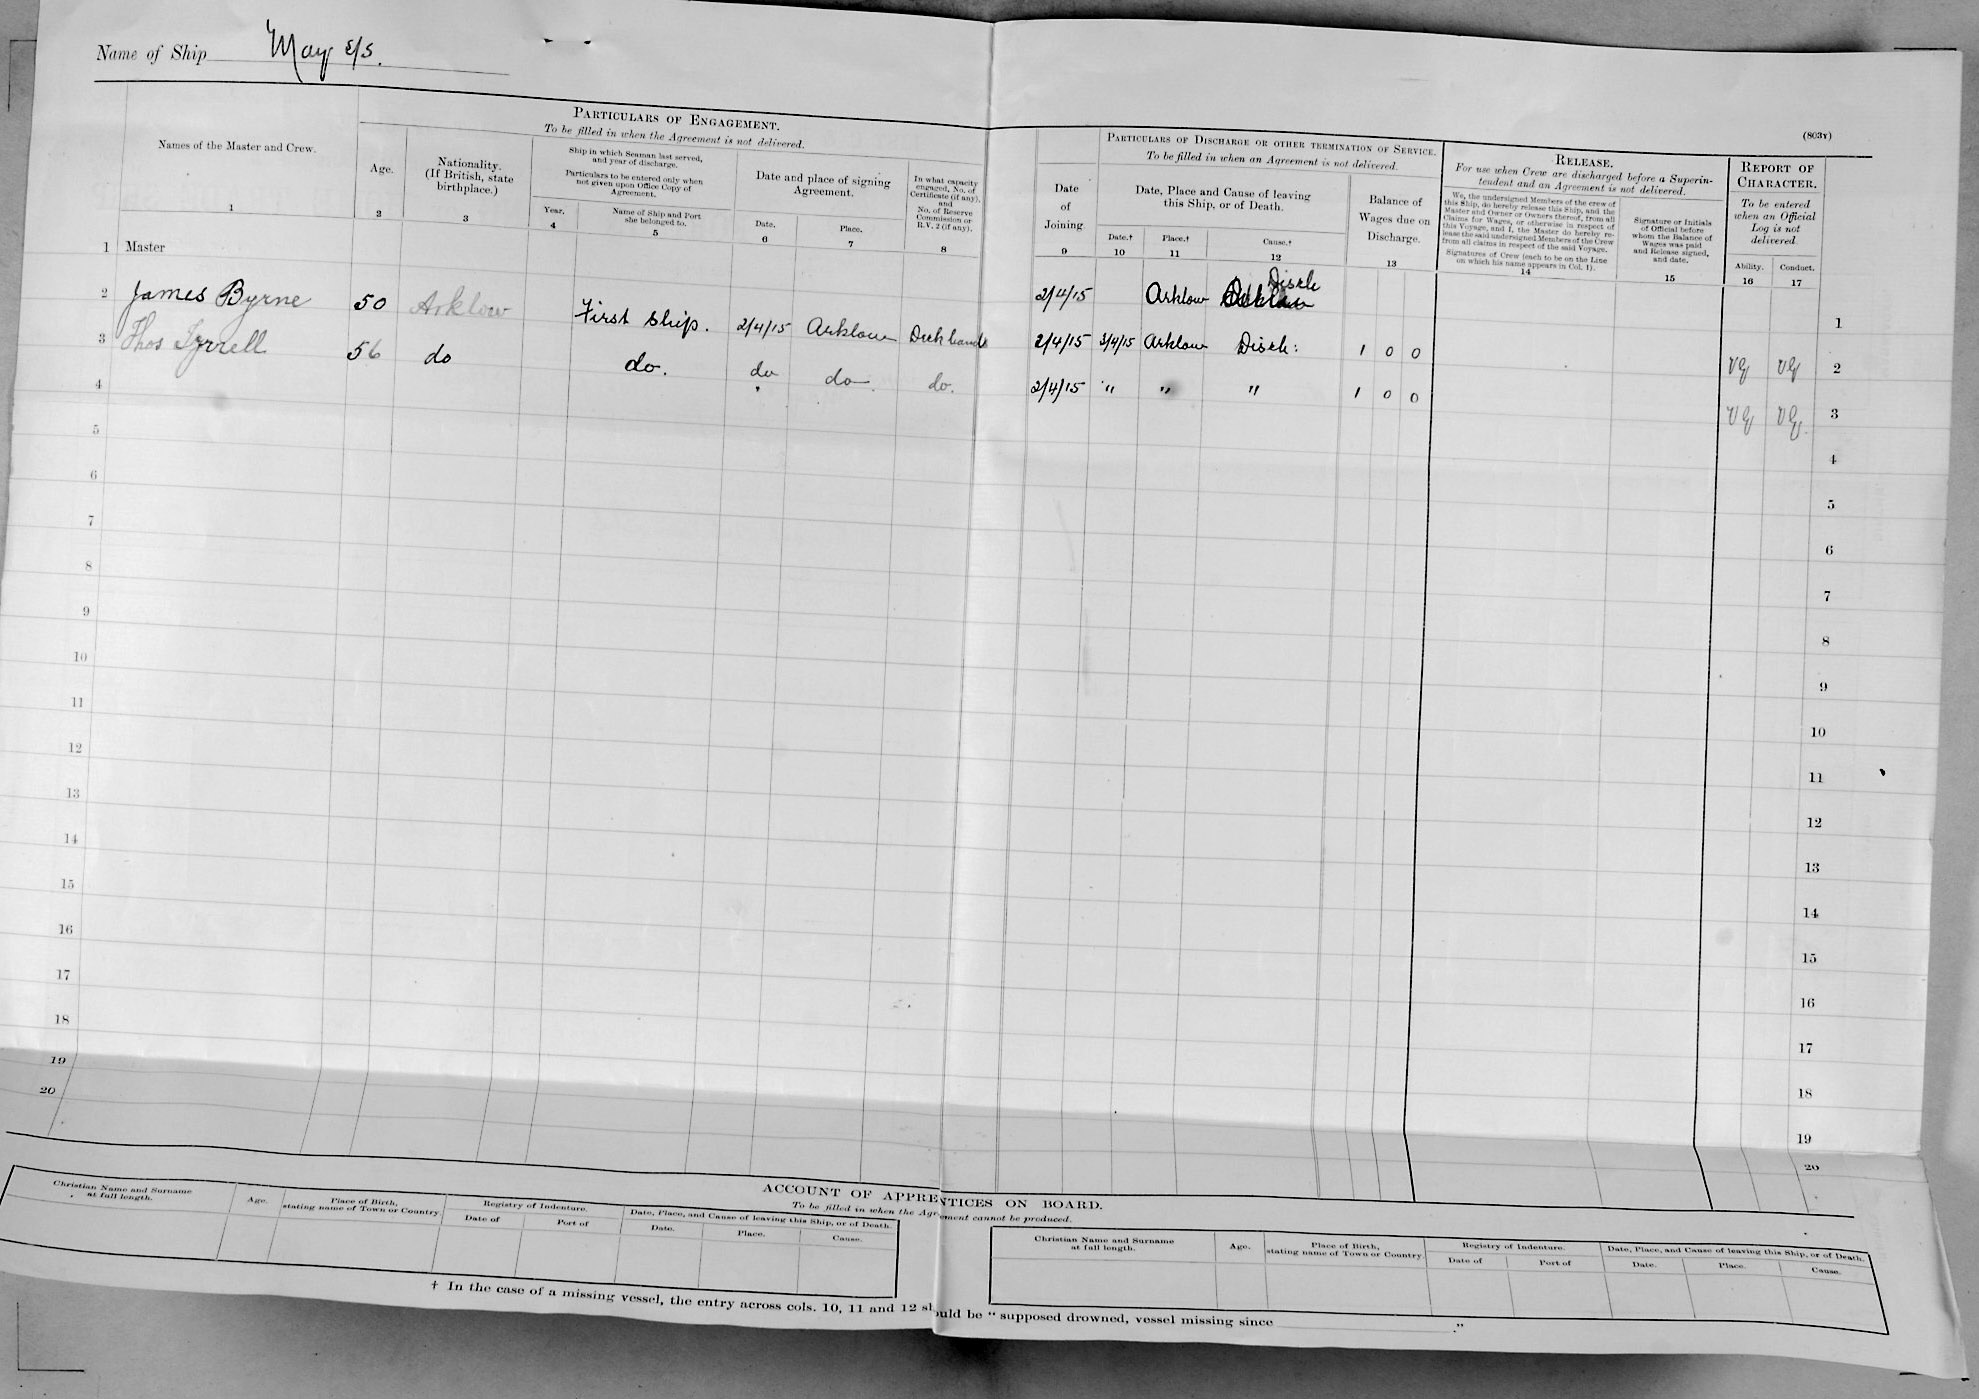 Name of Ship May s/s.
(803Y)
PARTICULARS OF ENGAGEMENT.
To be filled in when the Agreement is not delivered.
Names of the Master and Crew.
1
Age.
2
Nationality.
(If British, state
birthplace.)
3
Ship in which Seaman last served,
and year of discharge.
Particulars to be entered only when
not given upon Office Copy of
Agreement.
Year.
4
Name of Ship and Port
she belonged to.
5
Date and place of signing
Agreement.
Date.
6
Place.
7
In what capacity
engaged, No. of
Certificate (if any),
and
No. of Reserve
Commission or
R.V. 2 (if any).
8
PARTICULARS OF DISCHARGE OR OTHER TERMINATION OF SERVICE.
To be filled in when an Agreement is not delivered.
Date
of
Joining
9
Date, Place and Cause of leaving
this Ship, or of Death.
Date.†
10
Place.†
11
Cause.†
12
Balance of
Wages due on
Discharge.
13
RELEASE.
For use when Crew are discharged before a Superin-
tendent and an Agreement is not delivered.
We, the undersigned Members of the crew of
this Ship, do hereby release this Ship, and the
Master and Owner or Owners thereof, from all
Claims for Wages, or otherwise in respect of
this Voyage, and I, the Master do hereby re-
lease the said undersigned Members of the Crew
from all claims in respect of the said Voyage.
Signatures of Crew (each to be on the Line
on which his name appears in Col. 1).
14
Signature or Initials
of Official before
whom the Balance of
Wages was paid
and Release signed,
and date.
15
REPORT OF
CHARACTER.
To be entered
when an Official
Log is not
delivered
Ability.
16
Conduct.
17
1 Master 2/4/15 Arklow Disch 1
2 James Byrne 50 Arklow First Ship. 2/4/15 Arklow Deckhand 2/4/15 3/4/15 Arklow Disch: 1 0 0 VG VG 2
3 Thos Tyrrell 56 do do. do do do. 2/4/15 " " " 1 0 0 VG VG. 3
4 4
5 5
6 6
7 7
8 8
9 9
10 10
11 11
12 12
13 13
14 14
15 15
16 16
17 17
18 18
19 19
20 20
ACCOUNT OF APPRENTICES ON BOARD.
To be filled in when the Agreement cannot be produced.
Christian Name and Surname
at full length.
Age.
Place of Birth,
stating name of Town or Country
Registry of Indenture.
Date of
Port of
Date, Place, and Cause of leaving this Ship, or of Death.
Date.
Place.
Cause.
Christian Name and Surname
at full length.
Age.
Place of Birth,
stating name of Town or Country
Registry of Indenture.
Date of
Port of
Date, Place, and Cause of leaving this Ship, or of Death.
Date.
Place.
Cause.
† In the case of a missing vessel, the entry across cols. 10, 11 and 12 should be "supposed drowned, vessel missing since ."